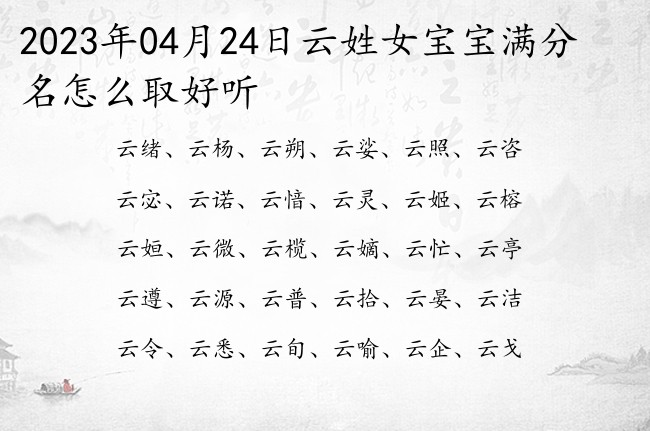 2023年04月24日云姓女宝宝满分
名怎么取好听
云绪、云杨、云朔、云娑、云照、云咨
云宓、云诺、云愔、云灵、云姬、云榕
云姮、云微、云榄、云嫡、云忙、云亭
云遵、云源、云普、云拾、云晏、云洁
云令、云悉、云旬、云喻、云企、云戈